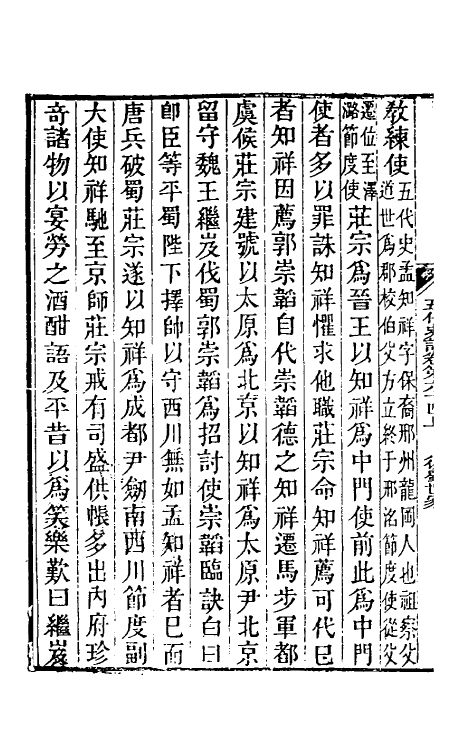 教練使五代史孟知祥字保裔邢州龍岡人也祖察父
道世爲郡校伯父方立終于邢洺節度使從父
遷位至澤
潞節度使莊宗爲晉王以知祥爲中門使前此爲中門
使者多以罪誅知祥懼求他職莊宗命知祥薦可代已
者知祥因薦郭崇韜自代崇韜德之知祥遷馬步軍都
虞候莊宗建號以太原爲北京以知祥爲太原尹北京
留守魏王繼岌伐蜀郭崇韜爲招討使崇韜臨訣白曰
卽臣等平蜀陛下擇帥以守西川無如孟知祥者已而
唐兵破蜀莊宗遂以知祥爲成都尹劒南西川節度副
大使知祥馳至京師莊宗戒有司盛供帳多出內府珍
奇諸物以宴勞之酒酣語及平昔以爲笑樂歎曰繼岌
五代史記卷六十四上 後蜀世家